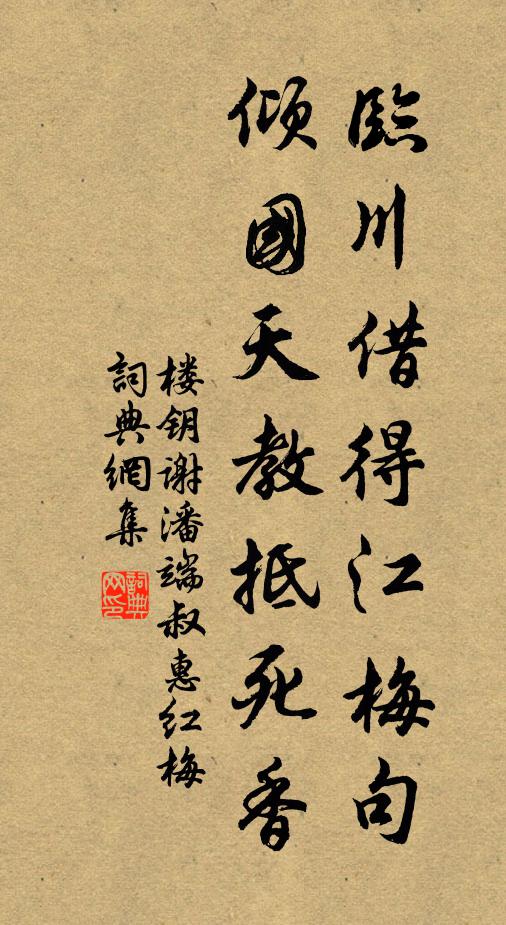 臨川借得江梅句
傾國天教抵死香
楼钥谢潘端叔惠红梅
詞典網集
詞典网印